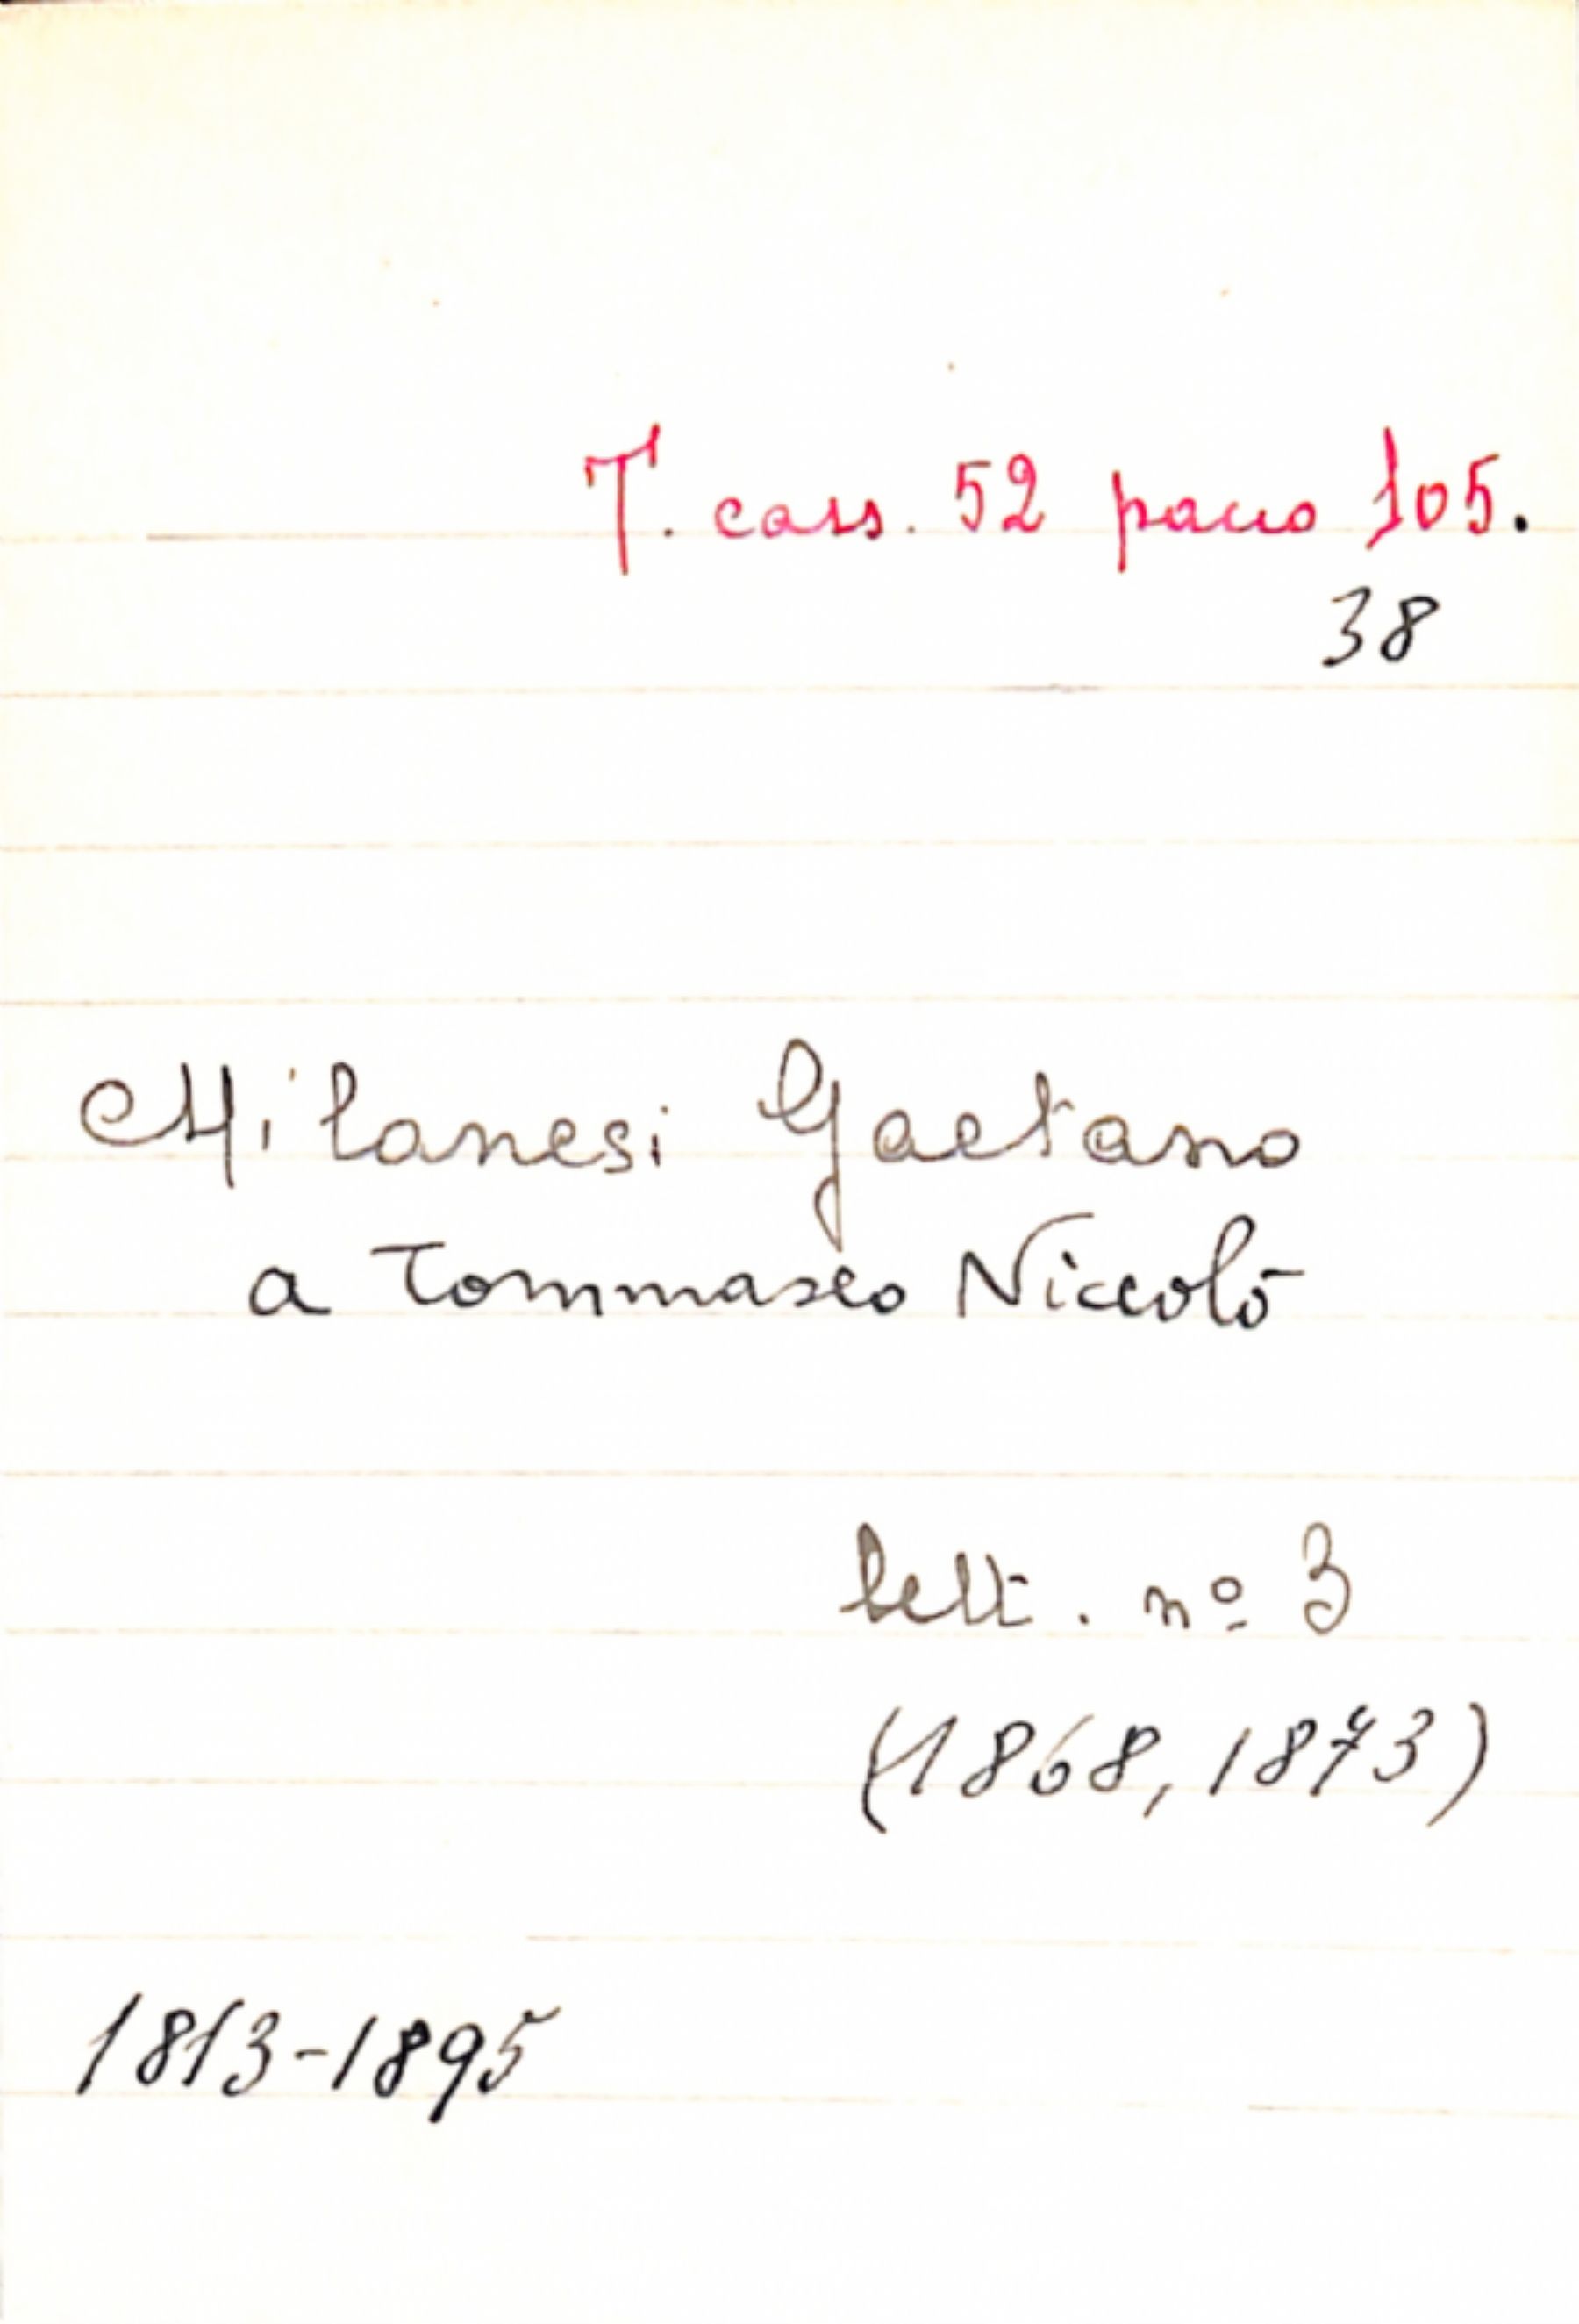 T. cass. 52 pacco 105.
38
Milanesi Gaetano
a Tommaseo Niccolò
lett. nº 3
(1868, 1873)
1813-1895